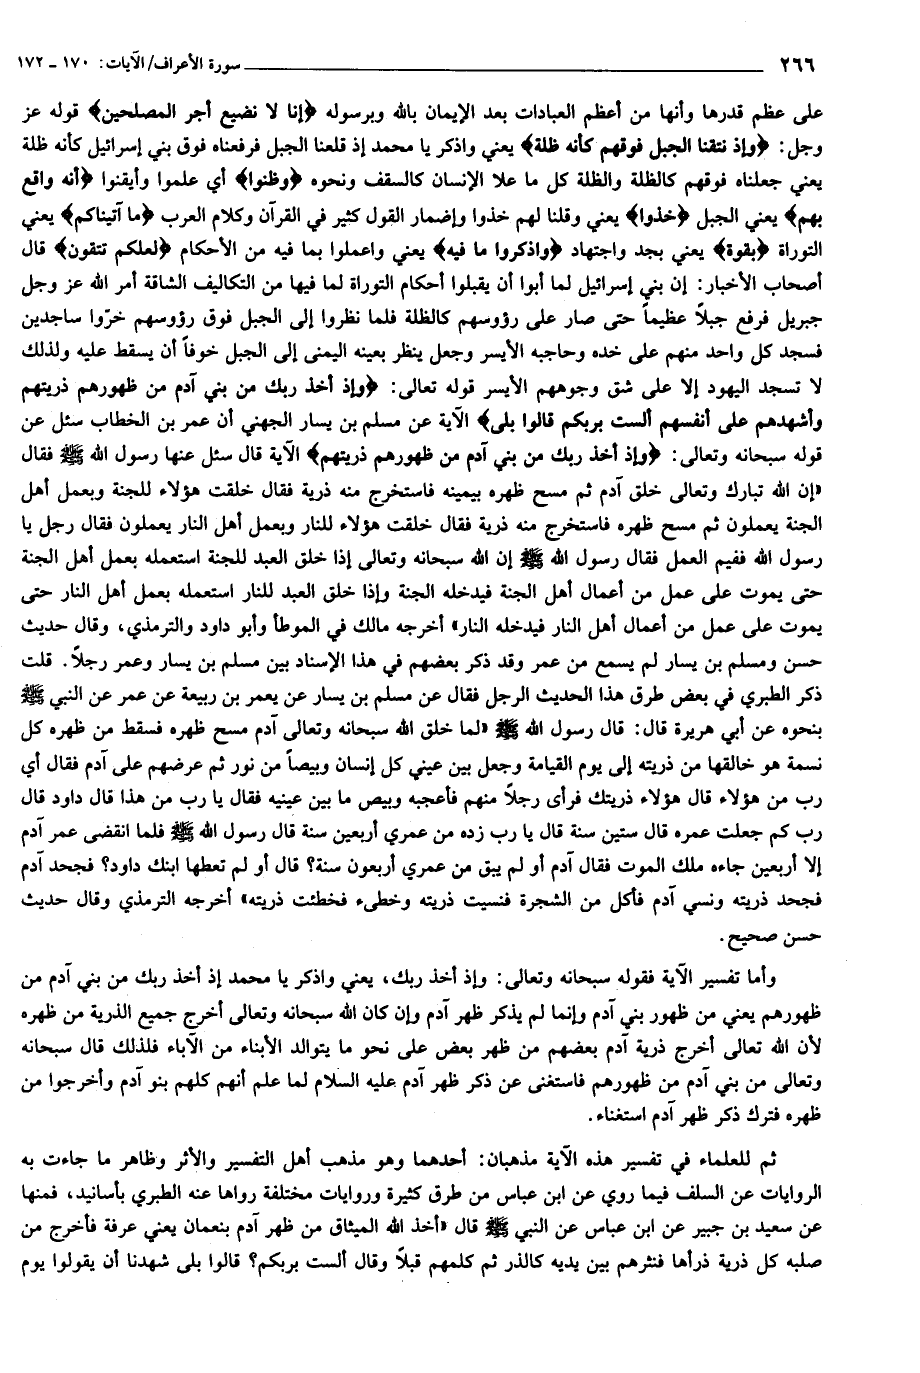 ٢٦٦ سورة الأعراف/ الآيات: ١٧٠ ـ ١٧٢
على عظم قدرها وأنها من أعظم العبادات بعد الإيمان بالله وبرسوله ﴿إنا لا نضيع أجر المصلحين﴾ قوله عز
وجل: ﴿وإذ نتقنا الجبل فوقهم كأنه ظلة﴾ يعني واذكر يا محمد إذ قلعنا الجبل فرفعناه فوق بني إسرائيل كأنه ظلة
يعني جعلناه فوقهم كالظلة والظلة كل ما علا الإنسان كالسقف ونحوه ﴿وظنوا﴾ أي علموا وأيقنوا ﴿أنه واقع
بهم﴾ يعني الجبل ﴿خذوا﴾ يعني وقلنا لهم خذوا وإضمار القول كثير في القرآن وكلام العرب ﴿ما آتيناكم﴾ يعني
التوراة ﴿بقوة﴾ يعني بجد واجتهاد ﴿واذكروا ما فيه﴾ يعني واعملوا بما فيه من الأحكام ﴿لعلكم تتقون﴾ قال
أصحاب الأخبار: إن بني إسرائيل لما أبوا أن يقبلوا أحكام التوراة لما فيها من التكاليف الشاقة أمر الله عز وجل
جبريل فرفع جبلاً عظيماً حتى صار على رؤوسهم كالظلة فلما نظروا إلى الجبل فوق رؤوسهم خرّوا ساجدين
فسجد كل واحد منهم على خده وحاجبه الأيسر وجعل ينظر بعينه اليمنى إلى الجبل خوفاً أن يسقط عليه ولذلك
لا تسجد اليهود إلا على شق وجوههم الأيسر قوله تعالى: ﴿وإذ أخذ ربك من بني آدم من ظهورهم ذريتهم
وأشهدهم على أنفسهم ألست بربكم قالوا بلى﴾ الآية عن مسلم بن يسار الجهني أن عمر بن الخطاب سئل عن
قوله سبحانه وتعالى: ﴿وإذ أخذ ربك من بني آدم من ظهورهم ذريتهم﴾ الآية قال سئل عنها رسول الله ﷺ فقال
«إن الله تبارك وتعالى خلق آدم ثم مسح ظهره بيمينه فاستخرج منه ذرية فقال خلقت هؤلاء للجنة وبعمل أهل
الجنة يعملون ثم مسح ظهره فاستخرج منه ذرية فقال خلقت هؤلاء للنار وبعمل أهل النار يعملون فقال رجل يا
رسول الله ففيم العمل فقال رسول الله ﷺ إن الله سبحانه وتعالى إذا خلق العبد للجنة استعمله بعمل أهل الجنة
حتى يموت على عمل من أعمال أهل الجنة فيدخله الجنة وإذا خلق العبد للنار استعمله بعمل أهل النار حتى
يموت على عمل من أعمال أهل النار فيدخله النار» أخرجه مالك في الموطأ وأبو داود والترمذي، وقال حديث
حسن ومسلم بن يسار لم يسمع من عمر وقد ذكر بعضهم في هذا الإسناد بين مسلم بن يسار وعمر رجلاً. قلت
ذكر الطبري في بعض طرق هذا الحديث الرجل فقال عن مسلم بن يسار عن يعمر بن ربيعة عن عمر عن النبي ﷺ
بنحوه عن أبي هريرة قال: قال رسول الله ﷺ «لما خلق الله سبحانه وتعالى آدم مسح ظهره فسقط من ظهره كل
نسمة هو خالقها من ذريته إلى يوم القيامة وجعل بين عيني كل إنسان وبيصاً من نور ثم عرضهم على آدم فقال أي
رب من هؤلاء قال هؤلاء ذريتك فرأى رجلاً منهم فأعجبه وبيص ما بين عينيه فقال يا رب من هذا قال داود قال
رب كم جعلت عمره قال ستين سنة قال يا رب زده من عمري أربعين سنة قال رسول الله ﷺ فلما انقضى عمر آدم
إلا أربعين جاءه ملك الموت فقال آدم أو لم يبق من عمري أربعون سنة؟ قال أو لم تعطها ابنك داود؟ فجحد آدم
فجحد ذريته ونسي آدم فأكل من الشجرة فنسيت ذريته وخطىء فخطئت ذريته» أخرجه الترمذي وقال حديث
حسن صحيح.
وأما تفسير الآية فقوله سبحانه وتعالى: وإذ أخذ ربك، يعني واذكر يا محمد إذ أخذ ربك من بني آدم من
ظهورهم يعني من ظهور بني آدم وإنما لم يذكر ظهر آدم وإن كان الله سبحانه وتعالى أخرج جميع الذرية من ظهره
لأن الله تعالى أخرج ذرية آدم بعضهم من ظهر بعض على نحو ما يتوالد الأبناء من الآباء فلذلك قال سبحانه
وتعالى من بني آدم من ظهورهم فاستغنى عن ذكر ظهر آدم عليه السلام لما علم أنهم كلهم بنو آدم وأخرجوا من
ظهره فترك ذكر ظهر آدم استغناء.
ثم للعلماء في تفسير هذه الآية مذهبان: أحدهما وهو مذهب أهل التفسير والأثر وظاهر ما جاءت به
الروايات عن السلف فيما روي عن ابن عباس من طرق كثيرة وروايات مختلفة رواها عنه الطبري بأسانيد، فمنها
عن سعيد بن جبير عن ابن عباس عن النبي ﷺ قال «أخذ الله الميثاق من ظهر آدم بنعمان يعني عرفة فأخرج من
صلبه كل ذرية ذرأها فنثرهم بين يديه كالذر ثم كلمهم قبلاً وقال ألست بربكم؟ قالوا بلى شهدنا أن يقولوا يوم